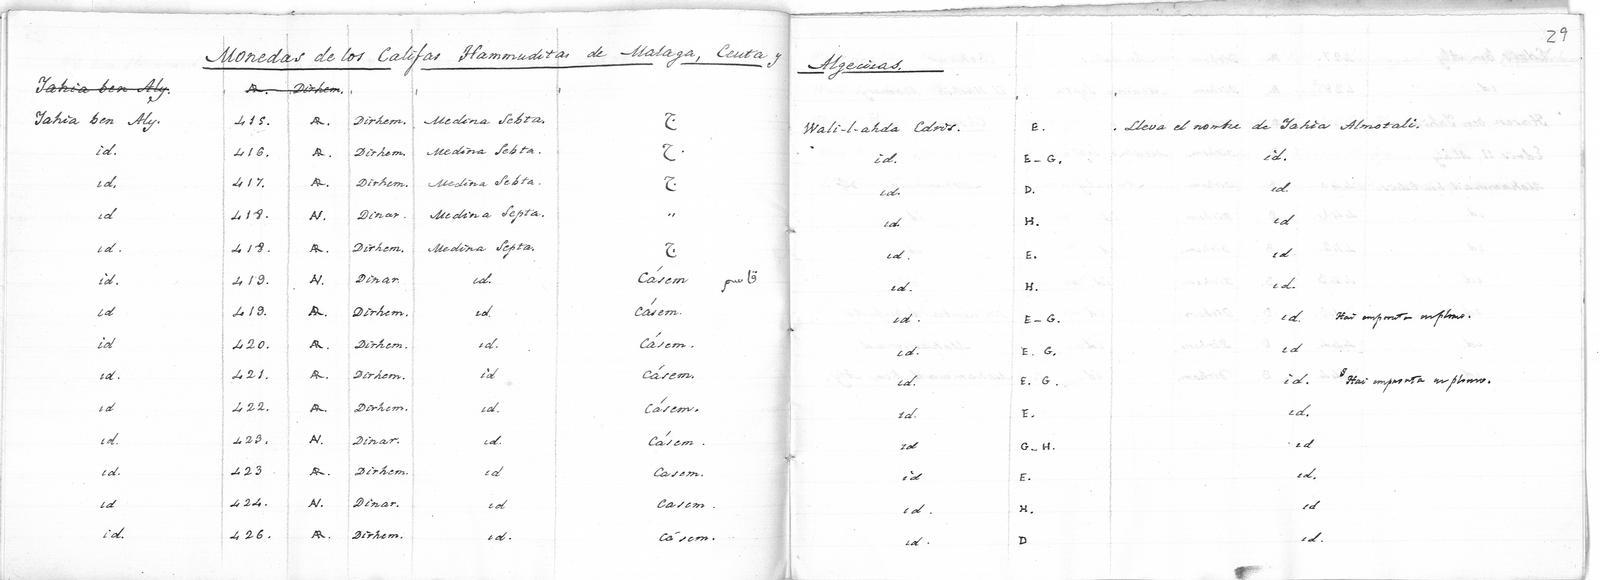 29
Monedas de los Califas Hammuditas de Malaga, Ceuta y Algeciras.
Iahia ben Aly. Æ. Dirhem.
Iahia ben Aly. 415. Æ. Dirhem. Medina Sebta. ج Wali-l-ahda Edris. E. Lleva el nombre de Iahia Almotali.
id. 416. Æ. Dirhem. Medina Sebta. ج id. E-G. id.
id. 417. Æ. Dirhem. Medina Sebta. ج id. D. id
id 418. N. Dinar. Medina Septa. " id H. id
id. 418. Æ. Dirhem. Medina Septa. ج id. E. id
id. 419. N. Dinar id. Cásem id. H. id.
id 419. Æ. Dirhem. id Cásem. id. E-G. id. Hai imp
id 420. Æ. Dirhem. id. Cásem. id. E. G. id
id. 421. Æ. Dirhem. id Cásem. id. E. G. id. Hai
id 422. Æ. Dirhem. id. Cásem. id. E. id.
id. 423. N. Dinar. id. Cásem. id G-H. id
id. 423 Æ. Dirhem. id Casem. id E. id.
id 424. N. Dinar. id Casem. id. H. id
id. 426. Æ. Dirhem. id. Cásem. id. D id.